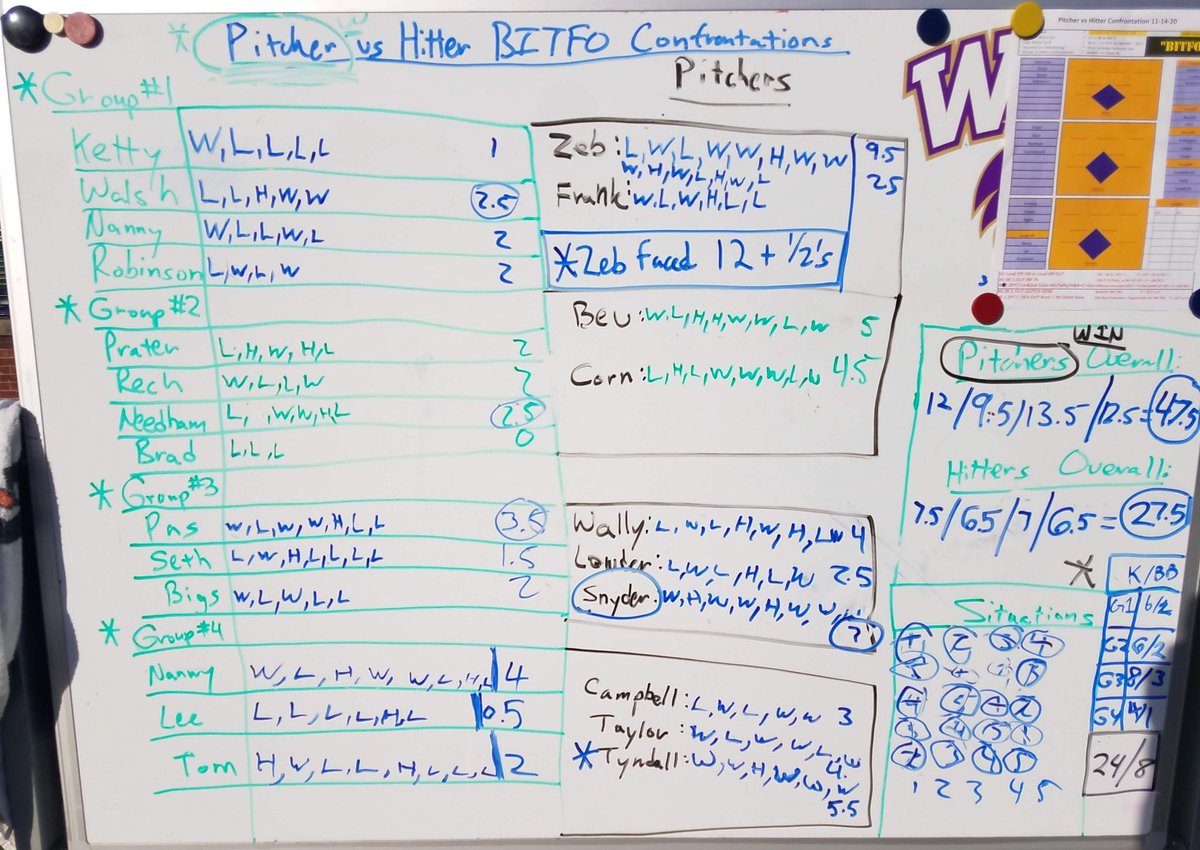 Pitcher vs Hitter BITFO Confrontations
W
* Group #1
Ketty W, L, L, L, L 1
Walsh L, L, H, W, W 2.5
Nanny W, L, L, W, L 2
Robinson L, W, L, W 2
* Group #2
Prater L, H, W, H, L 2
Rech W, L, L, W 2
Needham L, W, W, H, L 2.5
Brad L, L, L 0
* Group #3
Pas W, L, W, W, H, L, L 3.5
Seth L, W, H, L, L, L, L 1.5
Bigs W, L, W, L, L 2
* Group #4
Nanny W, L, H, W, W, L, H, L 4
Lee L, L, L, L, H, L 0.5
Tom H, W, L, L, H, L, L, L 2
Pitchers
Zeb: L, W, L, W, W, H, W, W 9.5
W, H, W, L, H, W, L
Frank: W, L, W, H, L, L 25
*Zeb Faced 12 + 1/2's
Bev: W, L, H, H, W, W, L, W 5
Corn: L, H, L, W, W, W, L, W 4.5
Wally: L, W, L, H, W, H, L W 4
Lowder: L, W, L, H, L, W 2.5
Snyder: W, H, W, W, H, W, W
7
Campbell: L, W, L, W, W 3
Taylor: W, L, W, W, L, W
4
* Tyndall: W, W, H, W, W, W
5.5
Pitcher vs Hitter Confrontation 11-14-20
"BITFO
W
WIN
Pitchers Overall:
12/9.5/13.5/12.5=47.5
Hitters Overall:
7.5/6.5/7/6.5=27.5
* K/BB
G1 6/2
G2 6/2
G3 8/3
G4 4/1
24/8
Situations
1 2 3 4 5